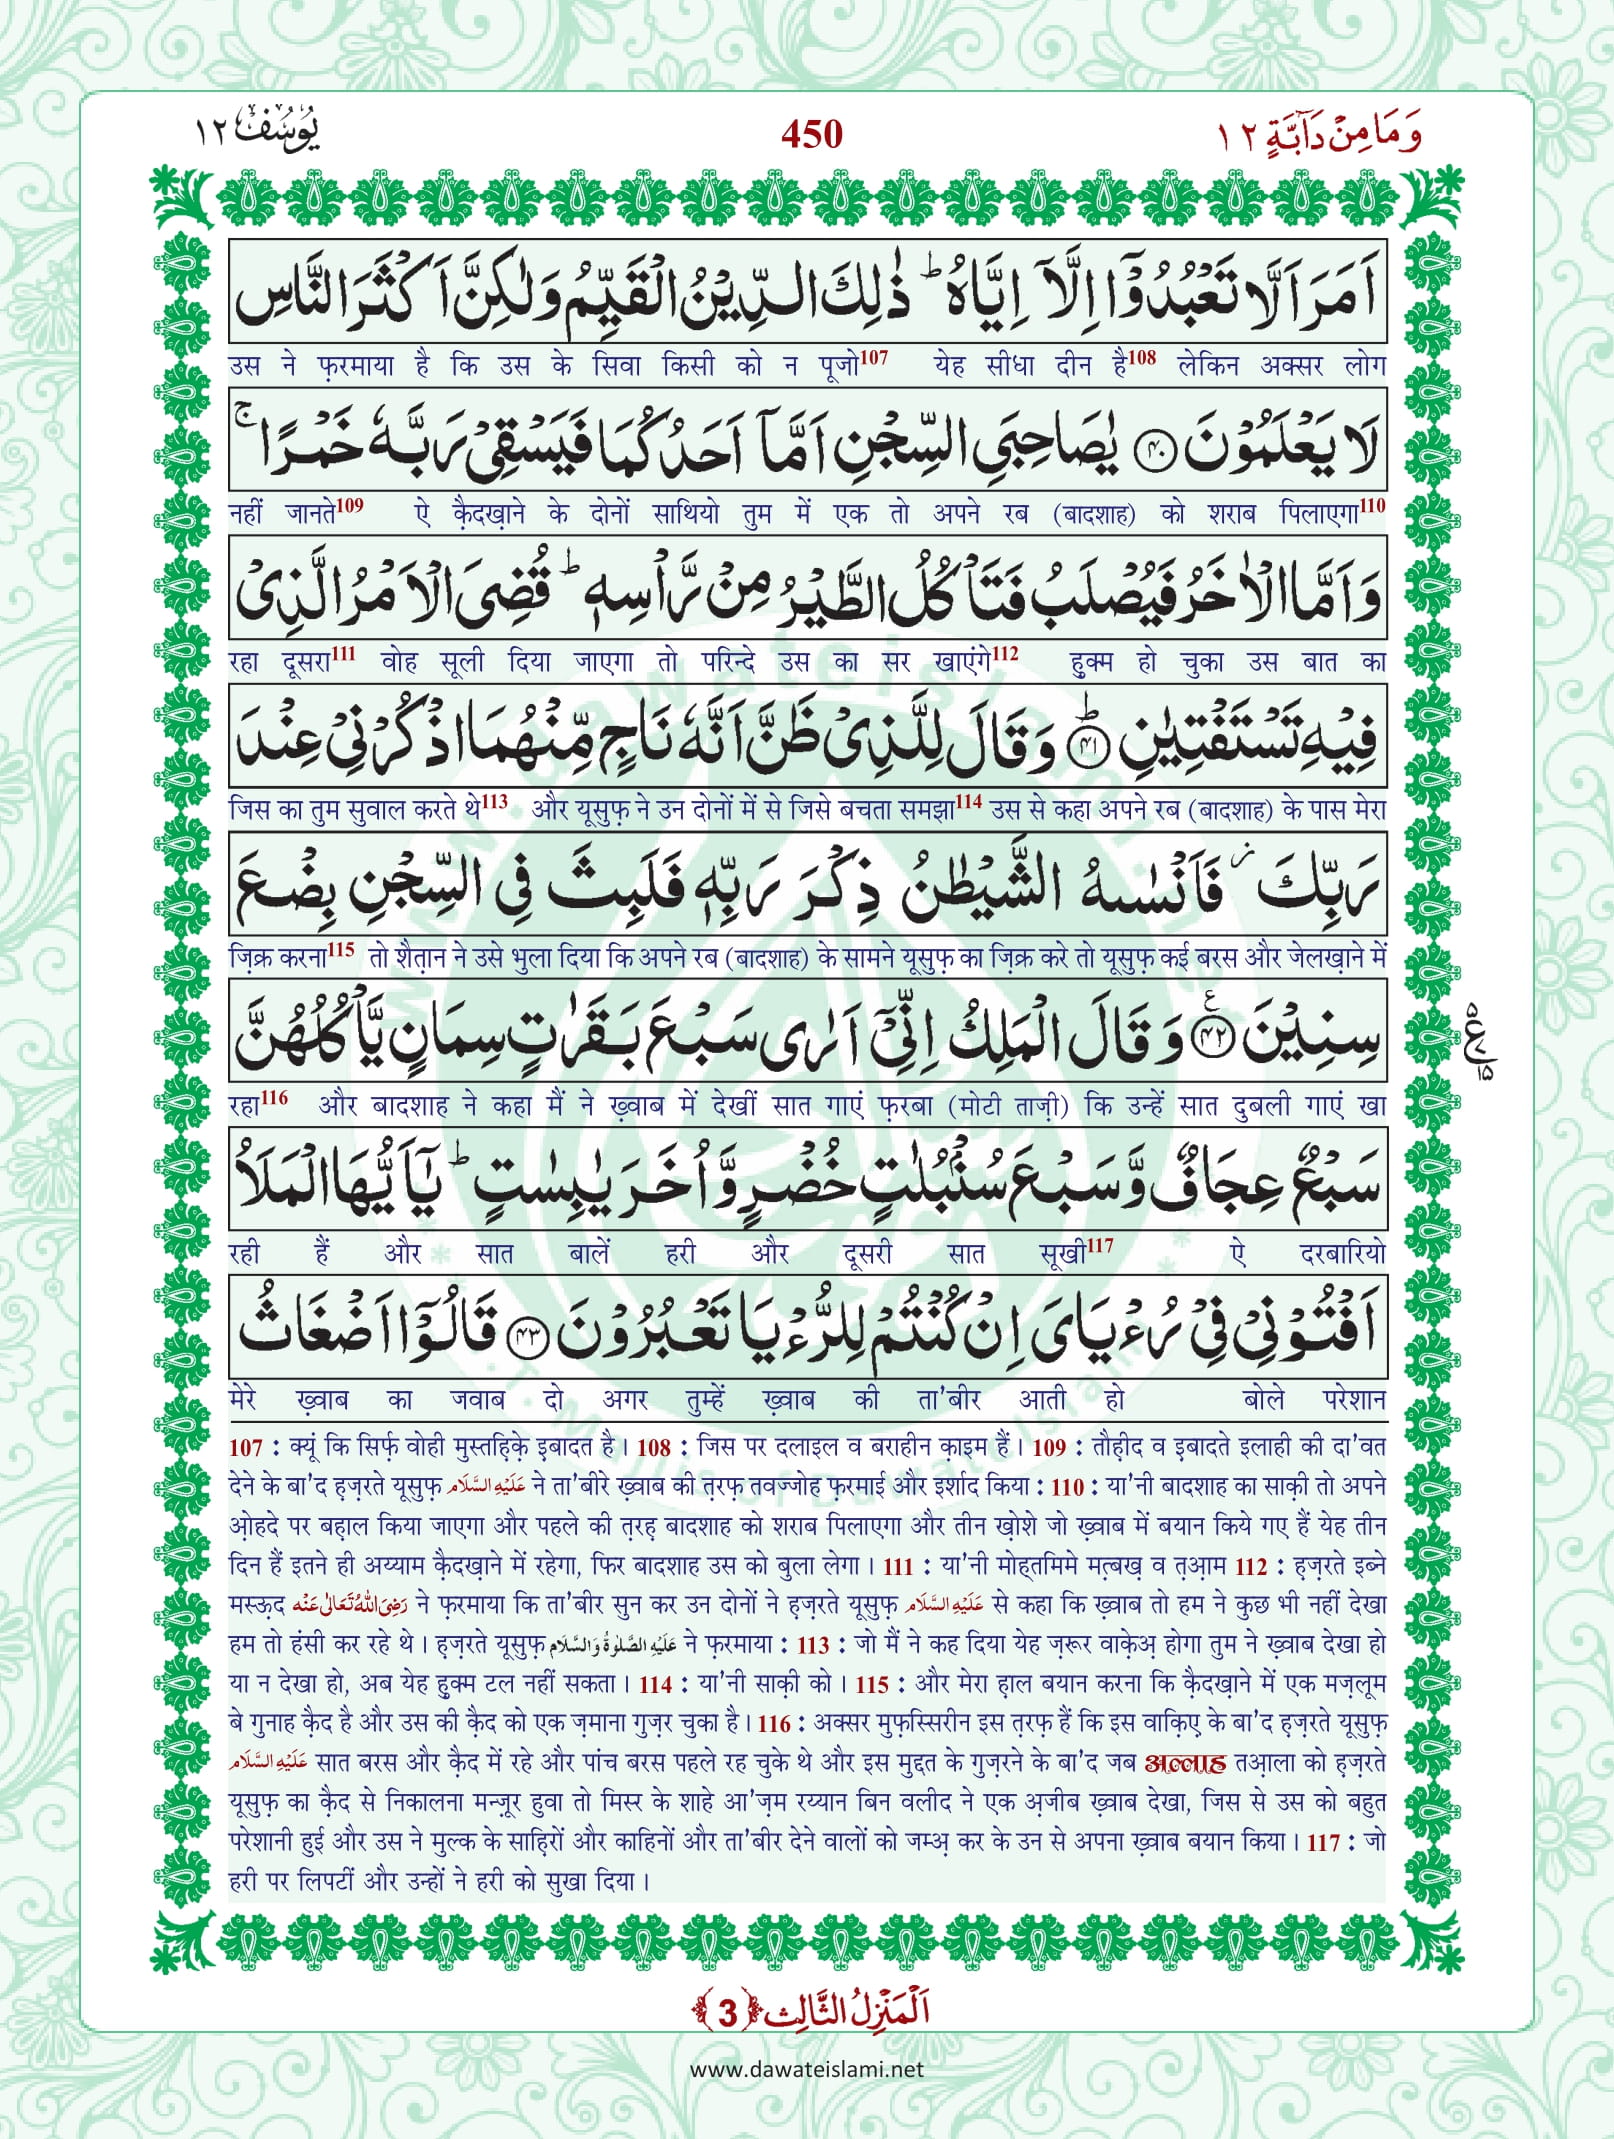 وَمَا مِنْ دَآبَّةٍ ١٢
450
يُوْسُف ١٢
اَمَرَ اَلَّا تَعْبُدُوْۤا اِلَّاۤ اِیَّاهُ ؕ ذٰلِكَ الدِّیْنُ الْقَیِّمُ وَ لٰكِنَّ اَكْثَرَ النَّاسِ
उस ने फ़रमाया है कि उस के सिवा किसी को न पूजो107 येह सीधा दीन है108 लेकिन अक्सर लोग
لَا یَعْلَمُوْنَ ﴿۴۰﴾ یٰصَاحِبَیِ السِّجْنِ اَمَّاۤ اَحَدُكُمَا فَیَسْقِیْ رَبَّهٗ خَمْرًا ۚ
नहीं जानते109 ऐ क़ैदख़ाने के दोनों साथियो तुम में एक तो अपने रब (बादशाह) को शराब पिलाएगा110
وَ اَمَّا الْاٰخَرُ فَیُصْلَبُ فَتَاْكُلُ الطَّیْرُ مِنْ رَّاْسِهٖ ؕ قُضِیَ الْاَمْرُ الَّذِیْ
रहा दूसरा111 वोह सूली दिया जाएगा तो परिन्दे उस का सर खाएंगे112 हुक्म हो चुका उस बात का
فِیْهِ تَسْتَفْتِیٰنِ ﴿ؕ۴۱﴾ وَ قَالَ لِلَّذِیْ ظَنَّ اَنَّهٗ نَاجٍ مِّنْهُمَا اذْكُرْنِیْ عِنْدَ
जिस का तुम सुवाल करते थे113 और यूसुफ़ ने उन दोनों में से जिसे बचता समझा114 उस से कहा अपने रब (बादशाह) के पास मेरा
رَبِّكَ ؗ فَاَنْسٰىهُ الشَّیْطٰنُ ذِكْرَ رَبِّهٖ فَلَبِثَ فِی السِّجْنِ بِضْعَ
ज़िक्र करना115 तो शैत़ान ने उसे भुला दिया कि अपने रब (बादशाह) के सामने यूसुफ़ का ज़िक्र करे तो यूसुफ़ कई बरस और जेलख़ाने में
سِنِیْنَ ﴿۴۲﴾ ع وَ قَالَ الْمَلِكُ اِنِّیْۤ اَرٰی سَبْعَ بَقَرٰتٍ سِمَانٍ یَّاْكُلُهُنَّ
٥ ع ١٥
रहा116 और बादशाह ने कहा मैं ने ख़्वाब में देखीं सात गाएं फ़रबा (मोटी ताज़ी) कि उन्हें सात दुबली गाएं खा
سَبْعٌ عِجَافٌ وَّ سَبْعَ سُنْۢبُلٰتٍ خُضْرٍ وَّ اُخَرَ یٰبِسٰتٍ ؕ یٰۤاَیُّهَا الْمَلَاُ
रही हैं और सात बालें हरी और दूसरी सात सूखी117 ऐ दरबारियो
اَفْتُوْنِیْ فِیْ رُءْیَایَ اِنْ كُنْتُمْ لِلرُّءْیَا تَعْبُرُوْنَ ﴿۴۳﴾ قَالُوْۤا اَضْغَاثُ
मेरे ख़्वाब का जवाब दो अगर तुम्हें ख़्वाब की ता'बीर आती हो बोले परेशान
107 : क्यूं कि सिर्फ़ वोही मुस्तह़िक़े इ़बादत है। 108 : जिस पर दलाइल व बराहीन क़ाइम हैं। 109 : तौह़ीद व इ़बादते इलाही की दा'वत
देने के बा'द ह़ज़रते यूसुफ़ عَلَیْہِ السَّلَام ने ता'बीरे ख़्वाब की त़रफ़ तवज्जोह फ़रमाई और इर्शाद किया : 110 : या'नी बादशाह का साक़ी तो अपने
ओ़हदे पर बह़ाल किया जाएगा और पहले की त़रह़ बादशाह को शराब पिलाएगा और तीन ख़ोशे जो ख़्वाब में बयान किये गए हैं येह तीन
दिन हैं इतने ही अय्याम क़ैदख़ाने में रहेगा, फिर बादशाह उस को बुला लेगा। 111 : या'नी मोह्तमिमे मत़्बख़ व त़आ़म 112 : ह़ज़रते इब्ने
मस्ऊ़द رَضِیَ اللّٰہُ تَعَالٰی عَنْہ ने फ़रमाया कि ता'बीर सुन कर उन दोनों ने ह़ज़रते यूसुफ़ عَلَیْہِ السَّلَام से कहा कि ख़्वाब तो हम ने कुछ भी नहीं देखा
हम तो हंसी कर रहे थे। ह़ज़रते यूसुफ़ عَلَیْہِ الصَّلٰوۃُ وَالسَّلَام ने फ़रमाया : 113 : जो मैं ने कह दिया येह ज़रूर वाक़ेअ़ होगा तुम ने ख़्वाब देखा हो
या न देखा हो, अब येह हुक्म टल नहीं सकता। 114 : या'नी साक़ी को। 115 : और मेरा ह़ाल बयान करना कि क़ैदख़ाने में एक मज़लूम
बे गुनाह क़ैद है और उस की क़ैद को एक ज़माना गुज़र चुका है। 116 : अक्सर मुफ़स्सिरीन इस त़रफ़ हैं कि इस वाक़िए के बा'द ह़ज़रते यूसुफ़
عَلَیْہِ السَّلَام सात बरस और क़ैद में रहे और पांच बरस पहले रह चुके थे और इस मुद्दत के गुज़रने के बा'द जब अल्लाह तआ़ला को ह़ज़रते
यूसुफ़ का क़ैद से निकालना मन्ज़ूर हुवा तो मिस्र के शाहे आ'ज़म रय्यान बिन वलीद ने एक अ़जीब ख़्वाब देखा, जिस से उस को बहुत
परेशानी हुई और उस ने मुल्क के साह़िरों और काहिनों और ता'बीर देने वालों को जम्अ़ कर के उन से अपना ख़्वाब बयान किया। 117 : जो
हरी पर लिपटीं और उन्हों ने हरी को सुखा दिया।
اَلْمَنْزِلُ الثَّالِث ﴿3﴾
www.dawateislami.net